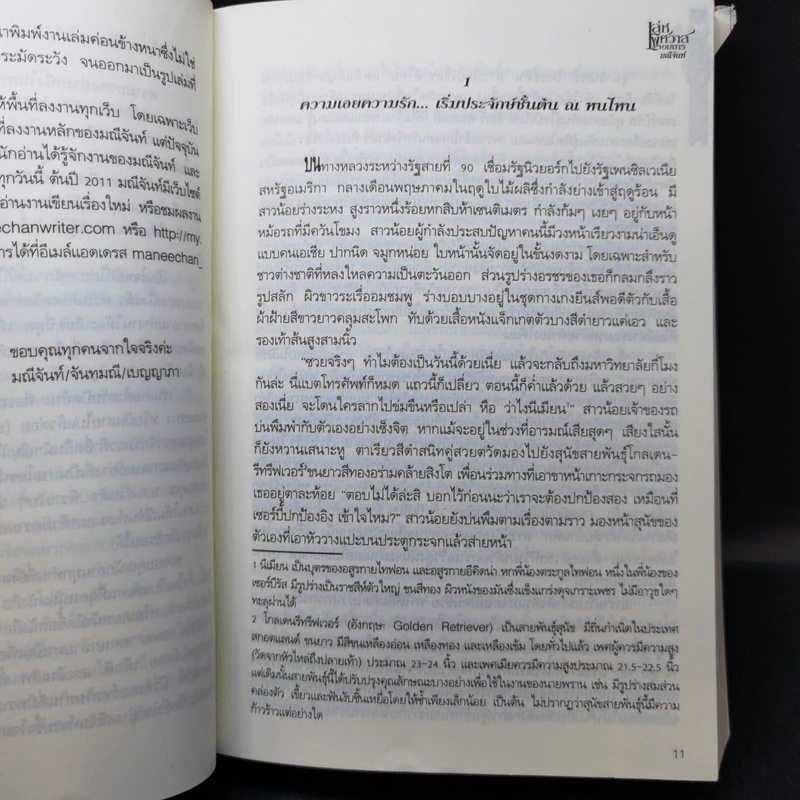 าพิมพ์งานเล่มค่อนข้างหนาซึ่งไม่ใช่
ระมัดระวัง จนออกมาเป็นรูปเล่มที่
ห้พื้นที่ลงงานทุกเว็บ โดยเฉพาะเว็บ
ที่ลงงานหลักของมณีจันท์ แต่ปัจจุบัน
นักอ่านได้รู้จักงานของมณีจันท์ และ
ทุกวันนี้ ต้นปี 2011 มณีจันท์มีเว็บไซต์
อ่านงานเขียนเรื่องใหม่ หรือชมผลงาน
eechanwriter.com หรือ http://my.
การได้ที่อีเมล์แอดเดรส maneechan_
ขอบคุณทุกคนจากใจจริงค่ะ
มณีจันท์/จันทมณี/เบญญาภา
เล่ห์
พิศวาส
จอมมาร
มณีจันท์
1
ความเอยความรัก... เริ่มประจักษ์ชั้นต้น ณ หนไหน
บนทางหลวงระหว่างรัฐสายที่ 90 เชื่อมรัฐนิวยอร์กไปยังรัฐเพนซิลเวเนีย
สหรัฐอเมริกา กลางเดือนพฤษภาคมในฤดูใบไม้ผลิซึ่งกำลังย่างเข้าสู่ฤดูร้อน มี
สาวน้อยร่างระหง สูงราวหนึ่งร้อยหกสิบห้าเซนติเมตร กำลังก้มๆ เงยๆ อยู่กับหน้า
หม้อรถที่มีควันโขมง สาวน้อยผู้กำลังประสบปัญหาคนนี้มีวงหน้าเรียวงามน่าเอ็นดู
แบบคนเอเชีย ปากนิด จมูกหน่อย ใบหน้านั้นจัดอยู่ในขั้นงดงาม โดยเฉพาะสำหรับ
ชาวต่างชาติที่หลงใหลความเป็นตะวันออก ส่วนรูปร่างอรชรของเธอก็กลมกลึงราว
รูปสลัก ผิวขาวระเรื่ออมชมพู ร่างบอบบางอยู่ในชุดกางเกงยีนส์พอดีตัวกับเสื้อ
ผ้าฝ้ายสีขาวยาวคลุมสะโพก ทับด้วยเสื้อหนังแจ็กเกตตัวบางสีดำยาวแค่เอว และ
รองเท้าส้นสูงสามนิ้ว
“ซวยจริงๆ ทำไมต้องเป็นวันนี้ด้วยเนี่ย แล้วจะกลับถึงมหาวิทยาลัยกี่โมง
กันล่ะ นี่แบตโทรศัพท์ก็หมด แถวนี้ก็เปลี่ยว ตอนนี้ก็ค่ำแล้วด้วย แล้วสวยๆ อย่าง
สองเนี่ย จะโดนใครลากไปข่มขืนหรือเปล่า หือ ว่าไงนีเมียน¹” สาวน้อยเจ้าของรถ
บ่นพึมพำกับตัวเองอย่างเซ็งจิต หากแม้จะอยู่ในช่วงที่อารมณ์เสียสุดๆ เสียงใสนั้น
ก็ยังหวานเสนาะหู ตาเรียวสีดำสนิทคู่สวยตวัดมองไปยังสุนัขสายพันธุ์โกลเดน-
รีทรีฟเวอร์²ขนยาวสีทองอร่ามคล้ายสิงโต เพื่อนร่วมทางที่เอาขาหน้าเกาะกระจกรถมอง
เธออยู่ตาละห้อย “ตอบไม่ได้ล่ะสิ บอกไว้ก่อนนะว่าเราจะต้องปกป้องสอง เหมือนที่
เซอร์บี้ปกป้องอิง เข้าใจไหม?” สาวน้อยยังบ่นพึมตามเรื่องตามราว มองหน้าสุนัขของ
ตัวเองที่เอาหัววางแปะบนประตูกระจกแล้วส่ายหน้า
1 นีเมียน เป็นบุตรของอสูรกายไทฟอน และอสูรกายอีคิดน่า หากพี่น้องตระกูลไทฟอน หนึ่งในพี่น้องของ
เซอร์บีรัส มีรูปร่างเป็นราชสีห์ตัวใหญ่ ขนสีทอง ผิวหนังของมันซึ่งแข็งแกร่งดุจเกราะเพชร ไม่มีอาวุธใดๆ
ทะลุผ่านได้
2 โกลเดนรีทรีฟเวอร์ (อังกฤษ: Golden Retriever) เป็นสายพันธุ์สุนัข มีถิ่นกำเนิดในประเทศ
สกอตแลนด์ ขนยาว มีสีขนเหลืองอ่อน เหลืองทอง และเหลืองเข้ม โดยทั่วไปแล้ว เพศผู้ควรมีความสูง
(วัดจากหัวไหล่ถึงปลายเท้า) ประมาณ 23-24 นิ้ว และเพศเมียควรมีความสูงประมาณ 21.5-22.5 นิ้ว
แต่เดิมนั้นสายพันธุ์นี้ได้ปรับปรุงคุณลักษณะบางอย่างเพื่อใช้ในงานของนายพราน เช่น มีรูปร่างสมส่วน
คล่องตัว เขี้ยวและฟันงับชิ้นเหยื่อโดยให้ช้ำเพียงเล็กน้อย เป็นต้น ไม่ปรากฏว่าสุนัขสายพันธุ์นี้มีความ
ก้าวร้าวแต่อย่างใด
11